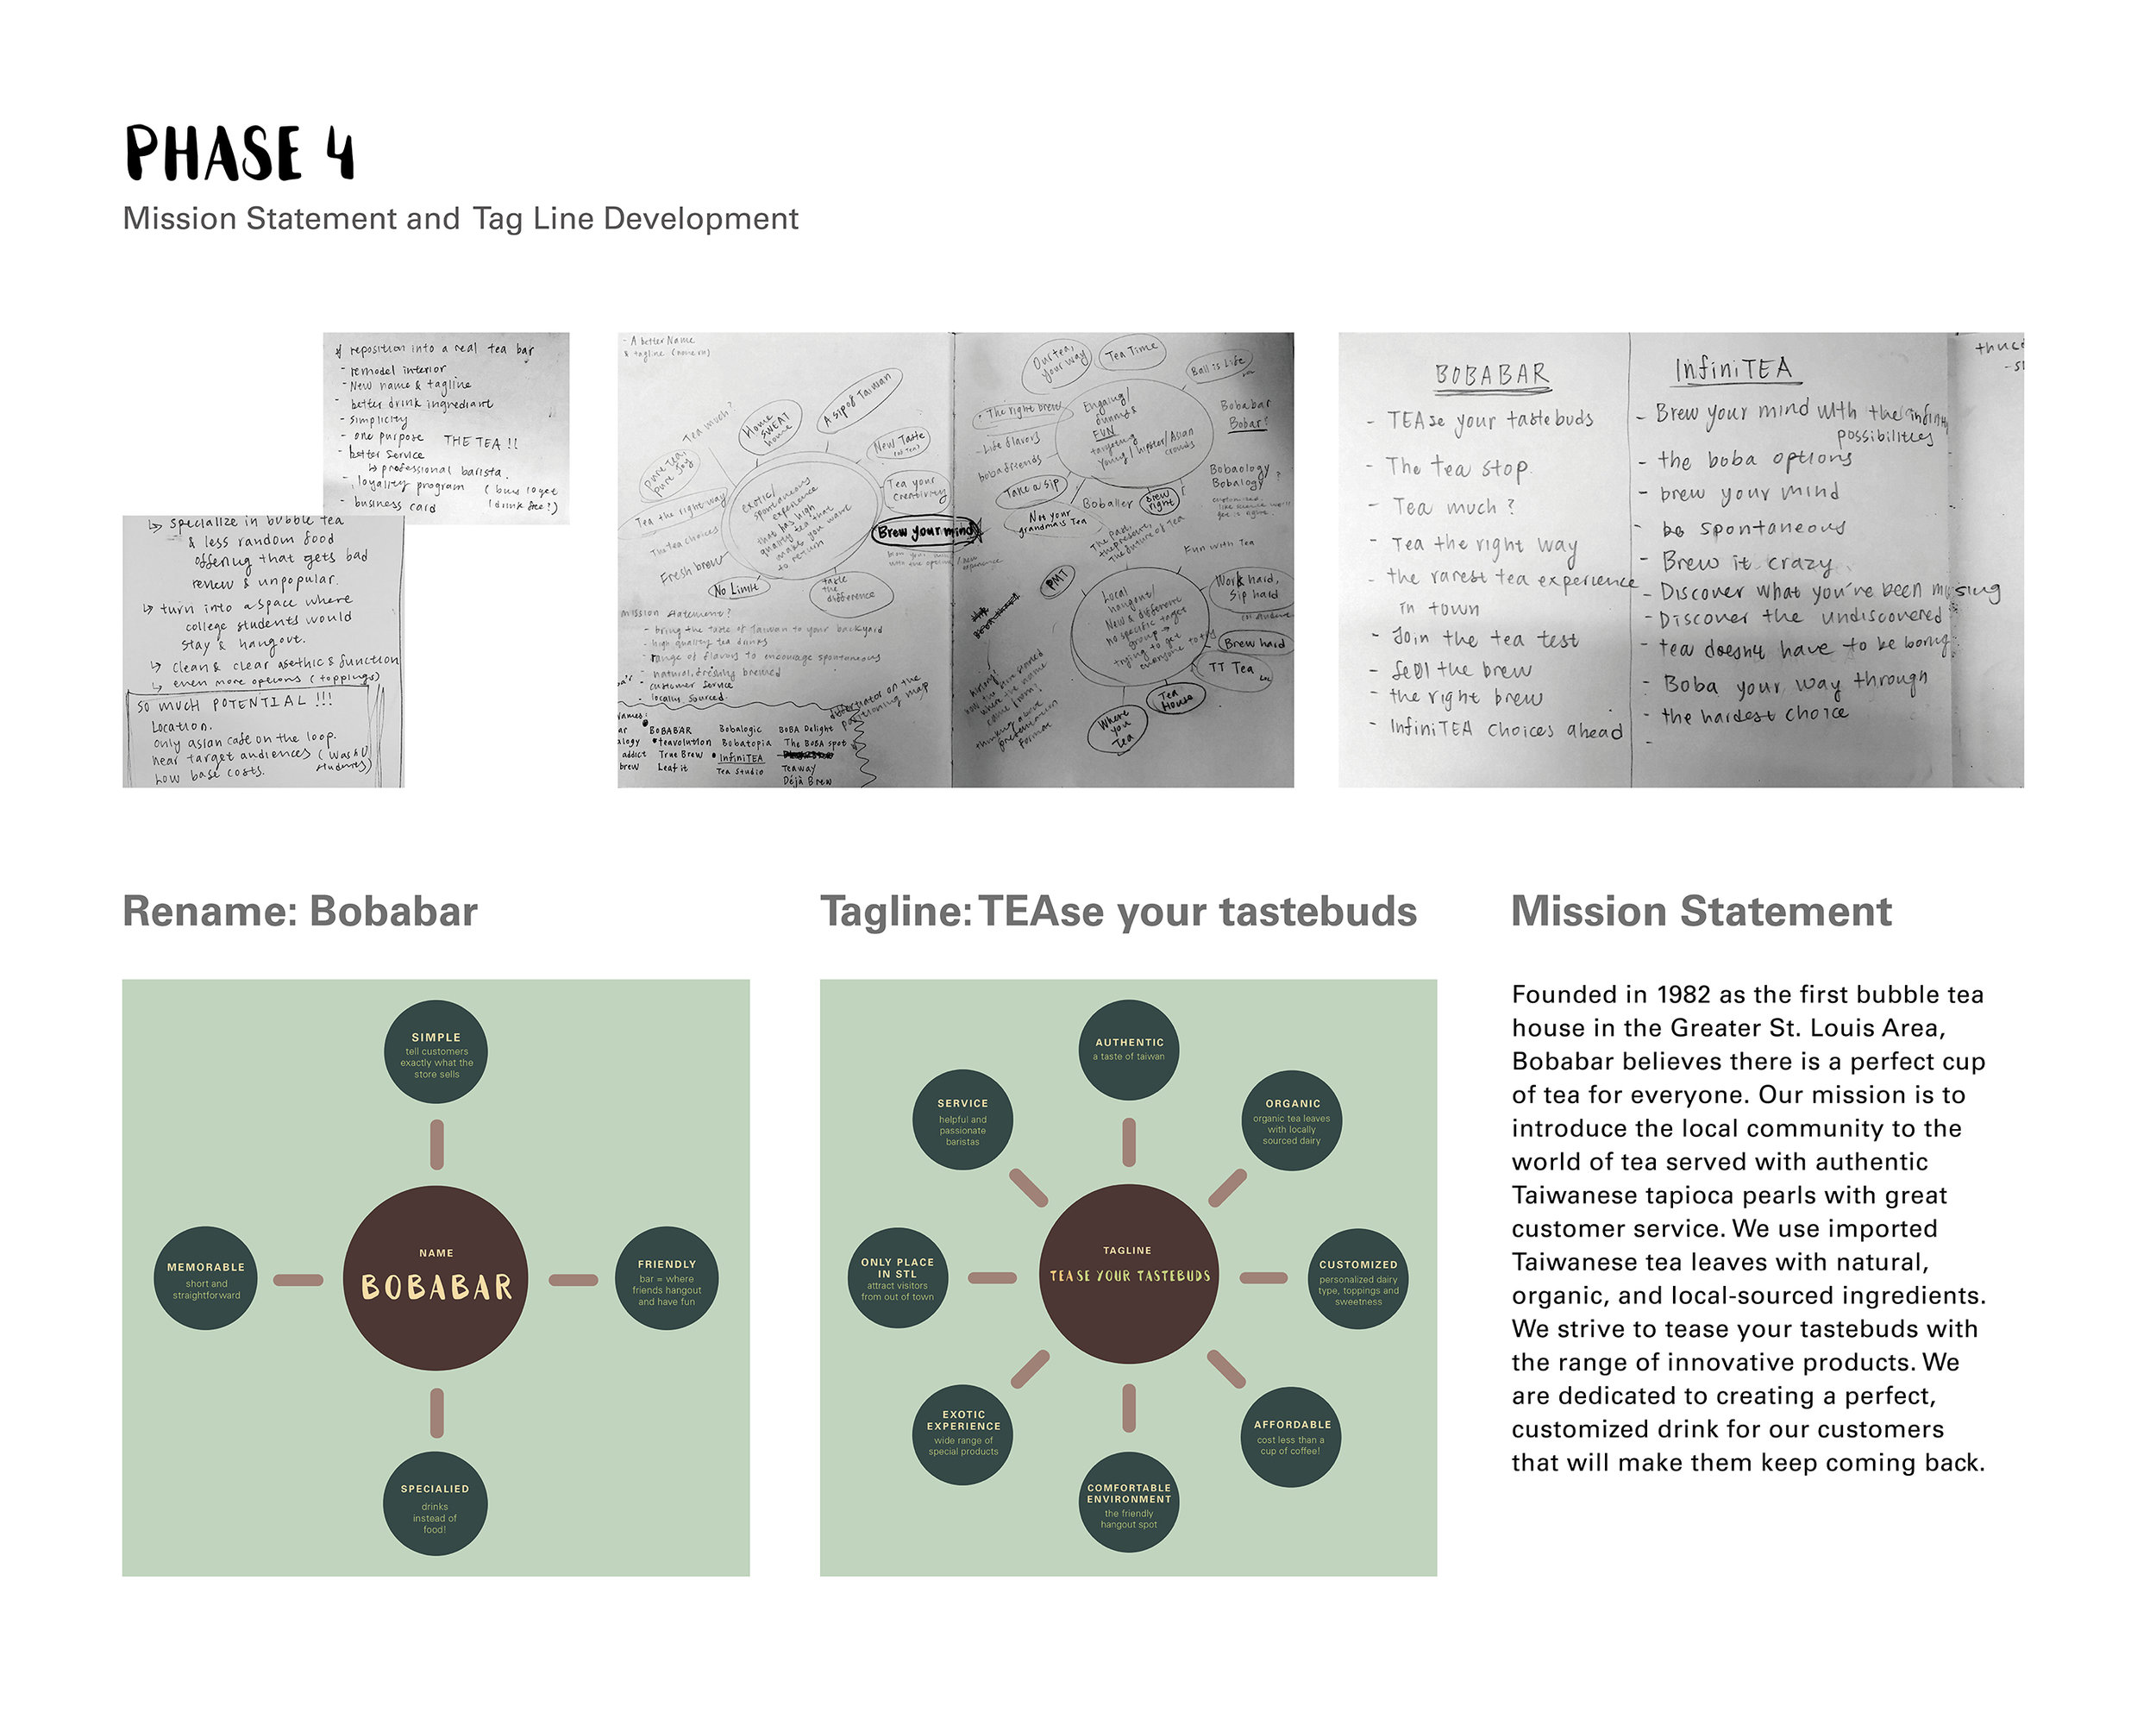 PHASE 4
Mission Statement and Tag Line Development
reposition into a real tea bar
- remodel interior
- New name & tagline
- better drink ingrediant
- simplicity
- one purpose THE TEA !!
- better service
↳ professional barista.
- loyality program (buy 10 get
- business card (drink free?)
↳ specialize in bubble tea
& less random food
offering that gets bad
review & unpopular.
↳ turn into a space where
college students would
stay & hangout.
↳ clean & clear asethic & function
↳ even more options (toppings)
SO MUCH POTENTIAL !!!
Location.
only asian cafe on the loop.
near target audiences (WashU
students)
low base costs.
- A better Name
& tagline
Tea much?
Home SWEAT home
A sip of Taiwan
New Taste
Pure Tea, pure Joy
Tea your creativity
Tea the right way
exotic/
spontaneous
experience
that has high
quality tea that
makes you want
to return
Brew your mind
The tea choices
Fresh brew
No Limit
taste the difference
mission statement?
- bring the taste of Taiwan to your backyard
- high quality tea drinks
- range of flavors to encourage spontaneous
- natural, freshing brewed
- customer service
- locally sourced
differtiator on the
positioning map
Names:
BOBABAR Bobalogic BOBA Delight
teavolution Bobatopia The BOBA spot
addict True Brew InfiniTEA
brew Leaf it Tea Studio Teaway
Déjà Brew
Our tea, your way
Tea Time
Ball is Life
The right brew
- Life flavors
bobafriends
Take a sip
FUN
targeting
Young/hipster/Asian
crowds
Bobabar
Bobar?
Bobaology
Bobalogy ?
Boballer
Brew right
Not your grandma's Tea
The past,
the present,
The future of Tea
Fun with Tea
PMT
Local
hangout/
New & different
no specific target
group →
trying to get
everyone to try
Work hard, Sip hard
Brew hard
TT Tea
Tea House
Where you Tea
BOBABAR
- TEAse your tastebuds
- The tea stop.
- Tea much?
- Tea the right way
- the rarest tea experience
in town
- Join the tea test
- the brew
- the right brew
- InfiniTEA choices ahead
InfiniTEA
- Brew your mind with the
possibilities
- the boba options
- brew your mind
- be spontaneous
- Brew it crazy
- Discover what you've been missing
- Discover the undiscovered
- tea doesn't have to be boring
- Boba your way through
- the hardest choice
Rename: Bobabar
SIMPLE
tell customers
exactly what the
store sells
MEMORABLE
short and
straightforward
NAME
BOBABAR
FRIENDLY
bar = where
friends hangout
and have fun
SPECIALIED
drinks
instead of
food!
Tagline: TEAse your tastebuds
AUTHENTIC
a taste of taiwan
SERVICE
helpful and
passionate
baristas
ORGANIC
organic tea leaves
with locally
sourced dairy
ONLY PLACE
IN STL
attract visitors
from out of town
TAGLINE
TEASE YOUR TASTEBUDS
CUSTOMIZED
personalized dairy
type, toppings and
sweetness
EXOTIC
EXPERIENCE
wide range of
special products
AFFORDABLE
cost less than a
cup of coffee!
COMFORTABLE
ENVIRONMENT
the friendly
hangout spot
Mission Statement
Founded in 1982 as the first bubble tea
house in the Greater St. Louis Area,
Bobabar believes there is a perfect cup
of tea for everyone. Our mission is to
introduce the local community to the
world of tea served with authentic
Taiwanese tapioca pearls with great
customer service. We use imported
Taiwanese tea leaves with natural,
organic, and local-sourced ingredients.
We strive to tease your tastebuds with
the range of innovative products. We
are dedicated to creating a perfect,
customized drink for our customers
that will make them keep coming back.